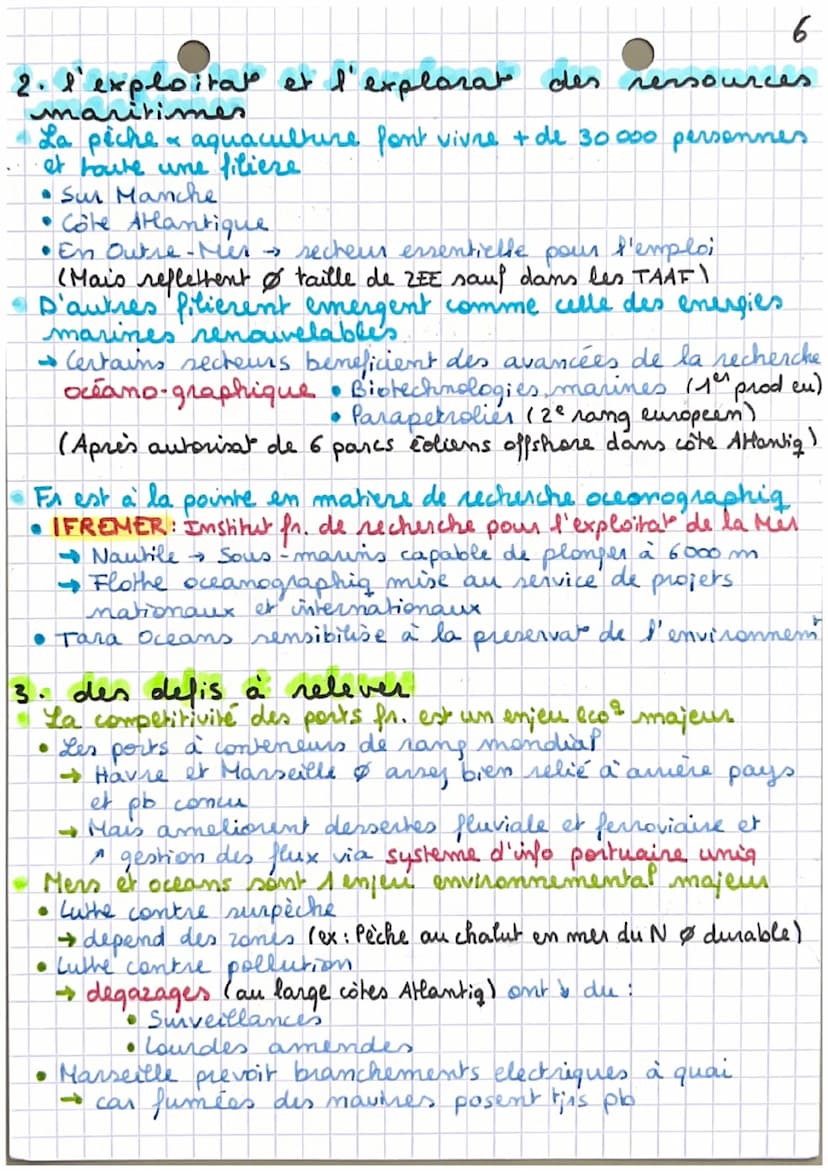 6
2. l'exploitat° et l'explorat° des ressources
maritimes
La pêche & aquaculture font vivre + de 30 000 personnes
et toute une filiere
• Sur Manche
• Côte Atlantique
• En Outre-Mer → secteur essentielle pour l'emploi
(Mais reflettent Ø taille de ZEE sauf dans les TAAF)
• D'autres filierent emergent comme celle des energies
marines renouvelables
→ Certains secteurs beneficient des avancées de la recherche
océano-graphique • Biotechnologies marines (1er prod eu)
• Parapetrolier (2e rang européen)
(Après autorisat° de 6 parcs éoliens offshore dans côte Atlantiq)
• Fr est à la pointe en matiere de recherche oceanographiq
• IFREMER : Institut fr. de recherche pour l'exploitat° de la Mer
→ Nautile → Sous-marins capable de plonger à 6000 m
→ Flotte oceanographiq mise au service de projets
nationaux et internationaux
• Tara Oceans sensibilise à la preservat° de l'environnemt
3. des defis à relever
• La competitivité des ports fr. est un enjeu ecoq majeur
• Les ports à conteneurs de rang mondial
→ Havre et Marseille Ø assez bien relié à arrière pays
et pb concu
→ Mais ameliorent dessertes fluviale et ferroviaire et
↗ gestion des flux via systeme d'info portuaire uniq
• Mers et oceans sont 1 enjeu environnemental majeur
• Lutte contre surpèche
→ depend des zones (ex : Pêche au chalut en mer du N Ø durable)
• Lutte contre pollution
→ degazages (au large côtes Atlantiq) ont ↘ du :
• Surveillances
• Lourdes amendes
• Marseille prevoit branchements electriques à quai
→ car fumées des navires posent tjrs pb